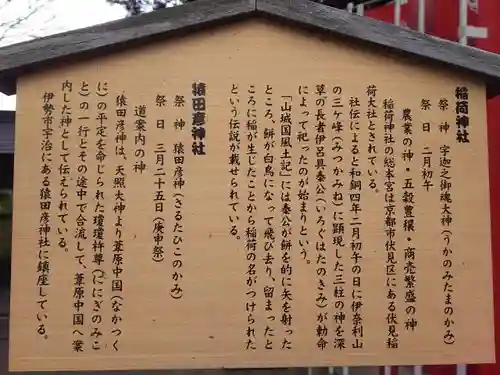 稲荷神社
祭　神　宇迦之御魂大神(うかのみたまのかみ)
祭　日　二月初午
農業の神・五穀豊穣・商売繁盛の神
稲荷神社の総本宮は京都市伏見区にある伏見稲
荷大社とされている。
社伝によると和銅四年二月初午の日に伊奈利山
の三ケ峰(みつかみね)に顕現した三柱の神を深
草の長者伊呂具秦公(いろぐはたのきみ)が勅命
によって祀ったのが始まりという。
「山城国風土記」には秦公が餅を的に矢を射った
ところ、餅が白鳥になって飛び去り、留まったと
ころに稲が生じたことから稲荷の名がつけられた
という伝説が載せられている。
猿田彦神社
祭　神　猿田彦神(さるたひこのかみ)
祭　日　三月二十五日(庚申祭)
道案内の神
猿田彦神は、天照大神より葦原中国(なかつく
に)の平定を命じられた瓊瓊杵尊(ににぎのみこ
と)の一行とその途中で合流して、葦原中国へ案
内した神として伝えられている。
伊勢市宇治にある猿田彦神社に鎮座している。